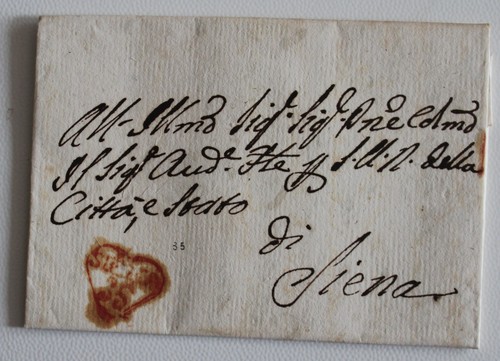 All Illmo Sigr. Sigr. Pne. Colmo
Il Sigr. Aude. Fte p S.A.R. della
Città, e Stato
di
Siena
35